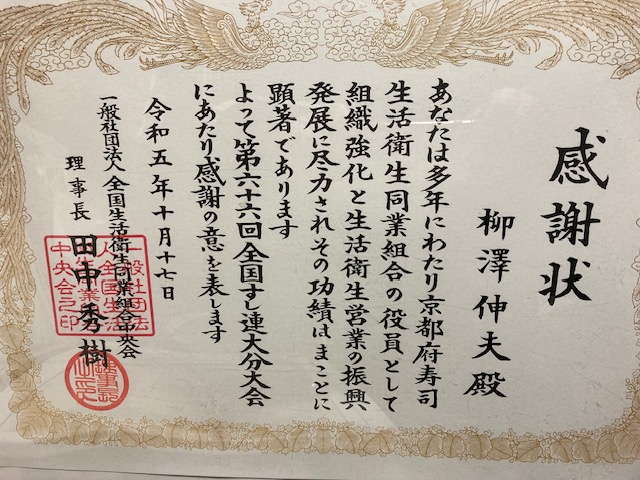 感謝状
柳澤伸夫殿
あなたは多年にわたり京都府寿司
生活衛生同業組合の役員として
組織強化と生活衛生営業の振興
発展に尽力されその功績はまことに
顕著であります
よって第六十六回全国すし連大分大会
にあたり感謝の意を表します
令和五年十月十七日
一般社団法人 全国生活衛生同業組合中央会
理事長 田中秀樹
一般社団法
人全国生活
中央会之印